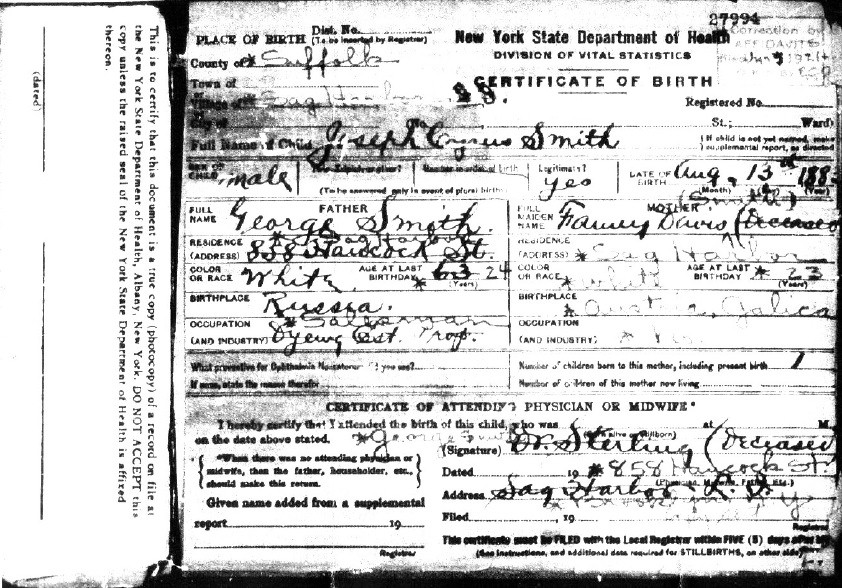 27994
PLACE OF BIRTH Dist. No.
(To be inserted by Registrar)
New York State Department of Health
DIVISION OF VITAL STATISTICS
CERTIFICATE OF BIRTH
Correction by
County of Suffolk
Town of
Village of Sag Harbor
Registered No.
City of (No. St.; Ward)
Full Name of Child Joseph Cyrus Smith
(If child is not yet named, make supplemental report, as directed
SEX OF CHILD male
Number in order of birth
(To be answered only in event of plural births)
Legitimate? yes
DATE OF BIRTH Aug. 13 188
(Month) (Year)
FATHER
FULL NAME George Smith.
RESIDENCE (ADDRESS) 858 Hancock St.
COLOR OR RACE White
AGE AT LAST BIRTHDAY 63 24
(Years)
BIRTHPLACE Russia.
OCCUPATION (AND INDUSTRY) Salesman
Dyeing Est. Prop.
MOTHER
FULL MAIDEN NAME Fanny Davis (Smith) (Deceased
RESIDENCE (ADDRESS) Sag Harbor
COLOR OR RACE white
AGE AT LAST BIRTHDAY 23
(Years)
BIRTHPLACE Galica
OCCUPATION (AND INDUSTRY)
What preventive for Ophthalmia Neonatorum did you use?
If none, state the reason therefor
Number of children born to this mother, including present birth 1
Number of children of this mother now living
CERTIFICATE OF ATTENDING PHYSICIAN OR MIDWIFE*
I hereby certify that I attended the birth of this child, who was at M.
on the date above stated.
(Born alive or stillborn)
(Signature) Dr. Sterling (Deceased
*When there was no attending physician or
midwife, then the father, householder, etc.,
should make this return.
Dated 19 858 Hancock St.
(Physician, Midwife, Father, Etc.)
Address Sag Harbor L. I.
Given name added from a supplemental
report 19
Filed 19
Registrar
Registrar
This certificate must be FILED with the Local Registrar within FIVE (5) days after
(See instructions, and additional data required for STILLBIRTHS, on other side)
This is to certify that this document is a true copy (photocopy) of a record on file at
the New York State Department of Health, Albany, New York. DO NOT ACCEPT this
copy unless the raised seal of the New York State Department of Health is affixed
thereon.
(dated)